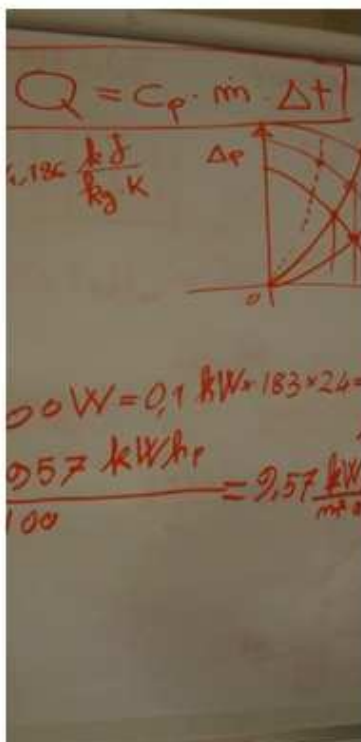 Q = cp · ṁ · Δt
4,186 kJ / kg · K
Δp
0
00W = 0,1 kW × 183 × 24 =
957 kWhp / 100 = 9,57 kW / m² a